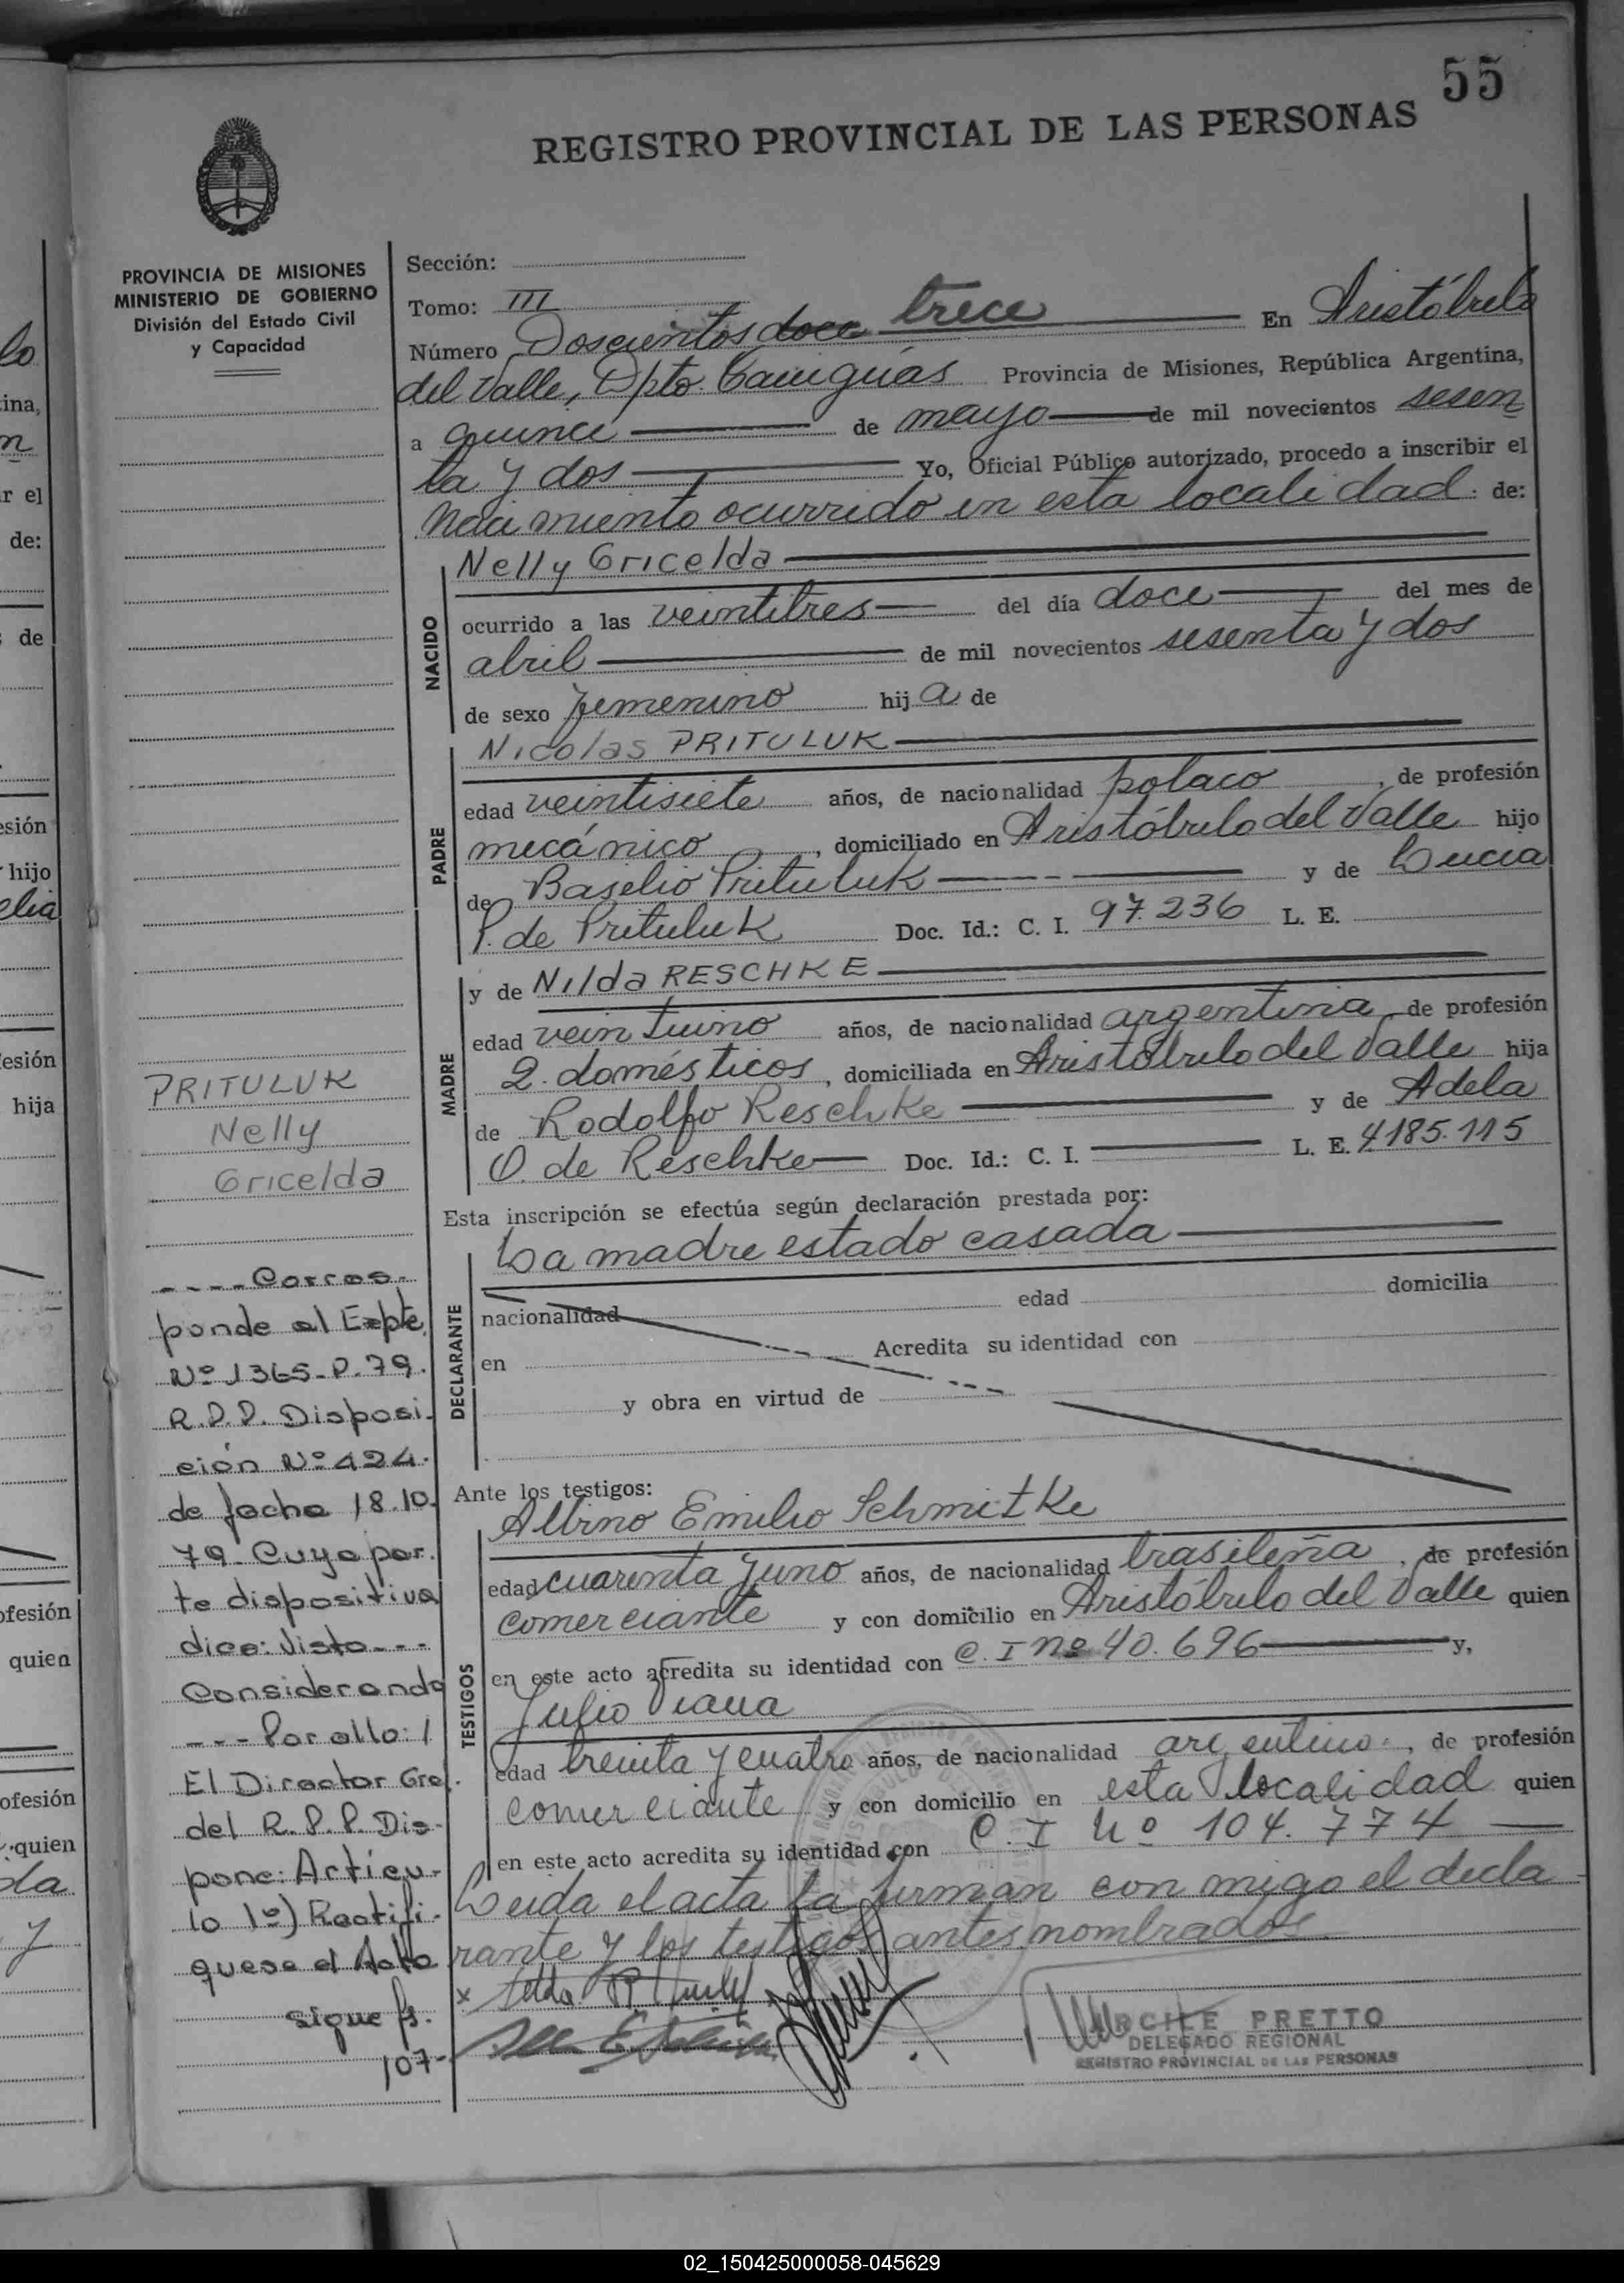 55
REGISTRO PROVINCIAL DE LAS PERSONAS
PROVINCIA DE MISIONES
MINISTERIO DE GOBIERNO
División del Estado Civil
y Capacidad
Sección:
Tomo: III
Número Doscientos doce trece En Aristóbulo
del Valle, Dpto. Cainguás Provincia de Misiones, República Argentina,
a quince de mayo de mil novecientos sesen
ta y dos Yo, Oficial Público autorizado, procedo a inscribir el
Nacimiento ocurrido en esta localidad. de:
NACIDO
Nelly Gricelda
ocurrido a las veintitres del día doce del mes de
abril de mil novecientos sesenta y dos
de sexo femenino hija de
PADRE
Nicolas PRITULUK
edad veintisiete años, de nacionalidad polaco, de profesión
mecánico, domiciliado en Aristóbulo del Valle hijo
de Baselio Prituluk y de Lucia
P. de Prituluk Doc. Id.: C. I. 97.236 L. E.
MADRE
y de Nilda RESCHKE
edad veintiuno años, de nacionalidad argentina, de profesión
Q. domésticos, domiciliada en Aristóbulo del Valle hija
de Rodolfo Reschke y de Adela
O. de Reschke Doc. Id.: C. I. L. E. 4.185.115
Esta inscripción se efectúa según declaración prestada por:
DECLARANTE
La madre estado casada
nacionalidad edad domicilia
en Acredita su identidad con
y obra en virtud de
Ante los testigos:
TESTIGOS
Albino Emilio Schmitke
edad cuarenta y uno años, de nacionalidad brasileña, de profesión
comerciante y con domicilio en Aristóbulo del Valle quien
en este acto acredita su identidad con C. I nº 40.696 y,
Julio Viana
edad treinta y cuatro años, de nacionalidad argentino, de profesión
comerciante y con domicilio en esta localidad quien
en este acto acredita su identidad con C. I Nº 104.774
Leida el acta la firman con migo el decla
rante y los testigos antes nombrados.
PRETTO
DELEGADO REGIONAL
REGISTRO PROVINCIAL DE LAS PERSONAS
PRITULUK
Nelly
Gricelda
----Corres-
ponde al Expte.
Nº 1365-P-79.
R.P.P. Disposi-
ción Nº 424.
de fecha 18.10.
79- Cuya par-
te dispositiva
dice: Visto---
Considerando
---Por ello: /
El Director Gral.
del R.P.P. Dis-
pone: Articu-
lo 1º) Rectifi-
quese el Acta
sigue fs.
107-
lo
ina,
n
r el
de:
de
esión
hijo
elia
esión
hija
ofesión
quien
ofesión
quien
da
y
02_150425000058-045629